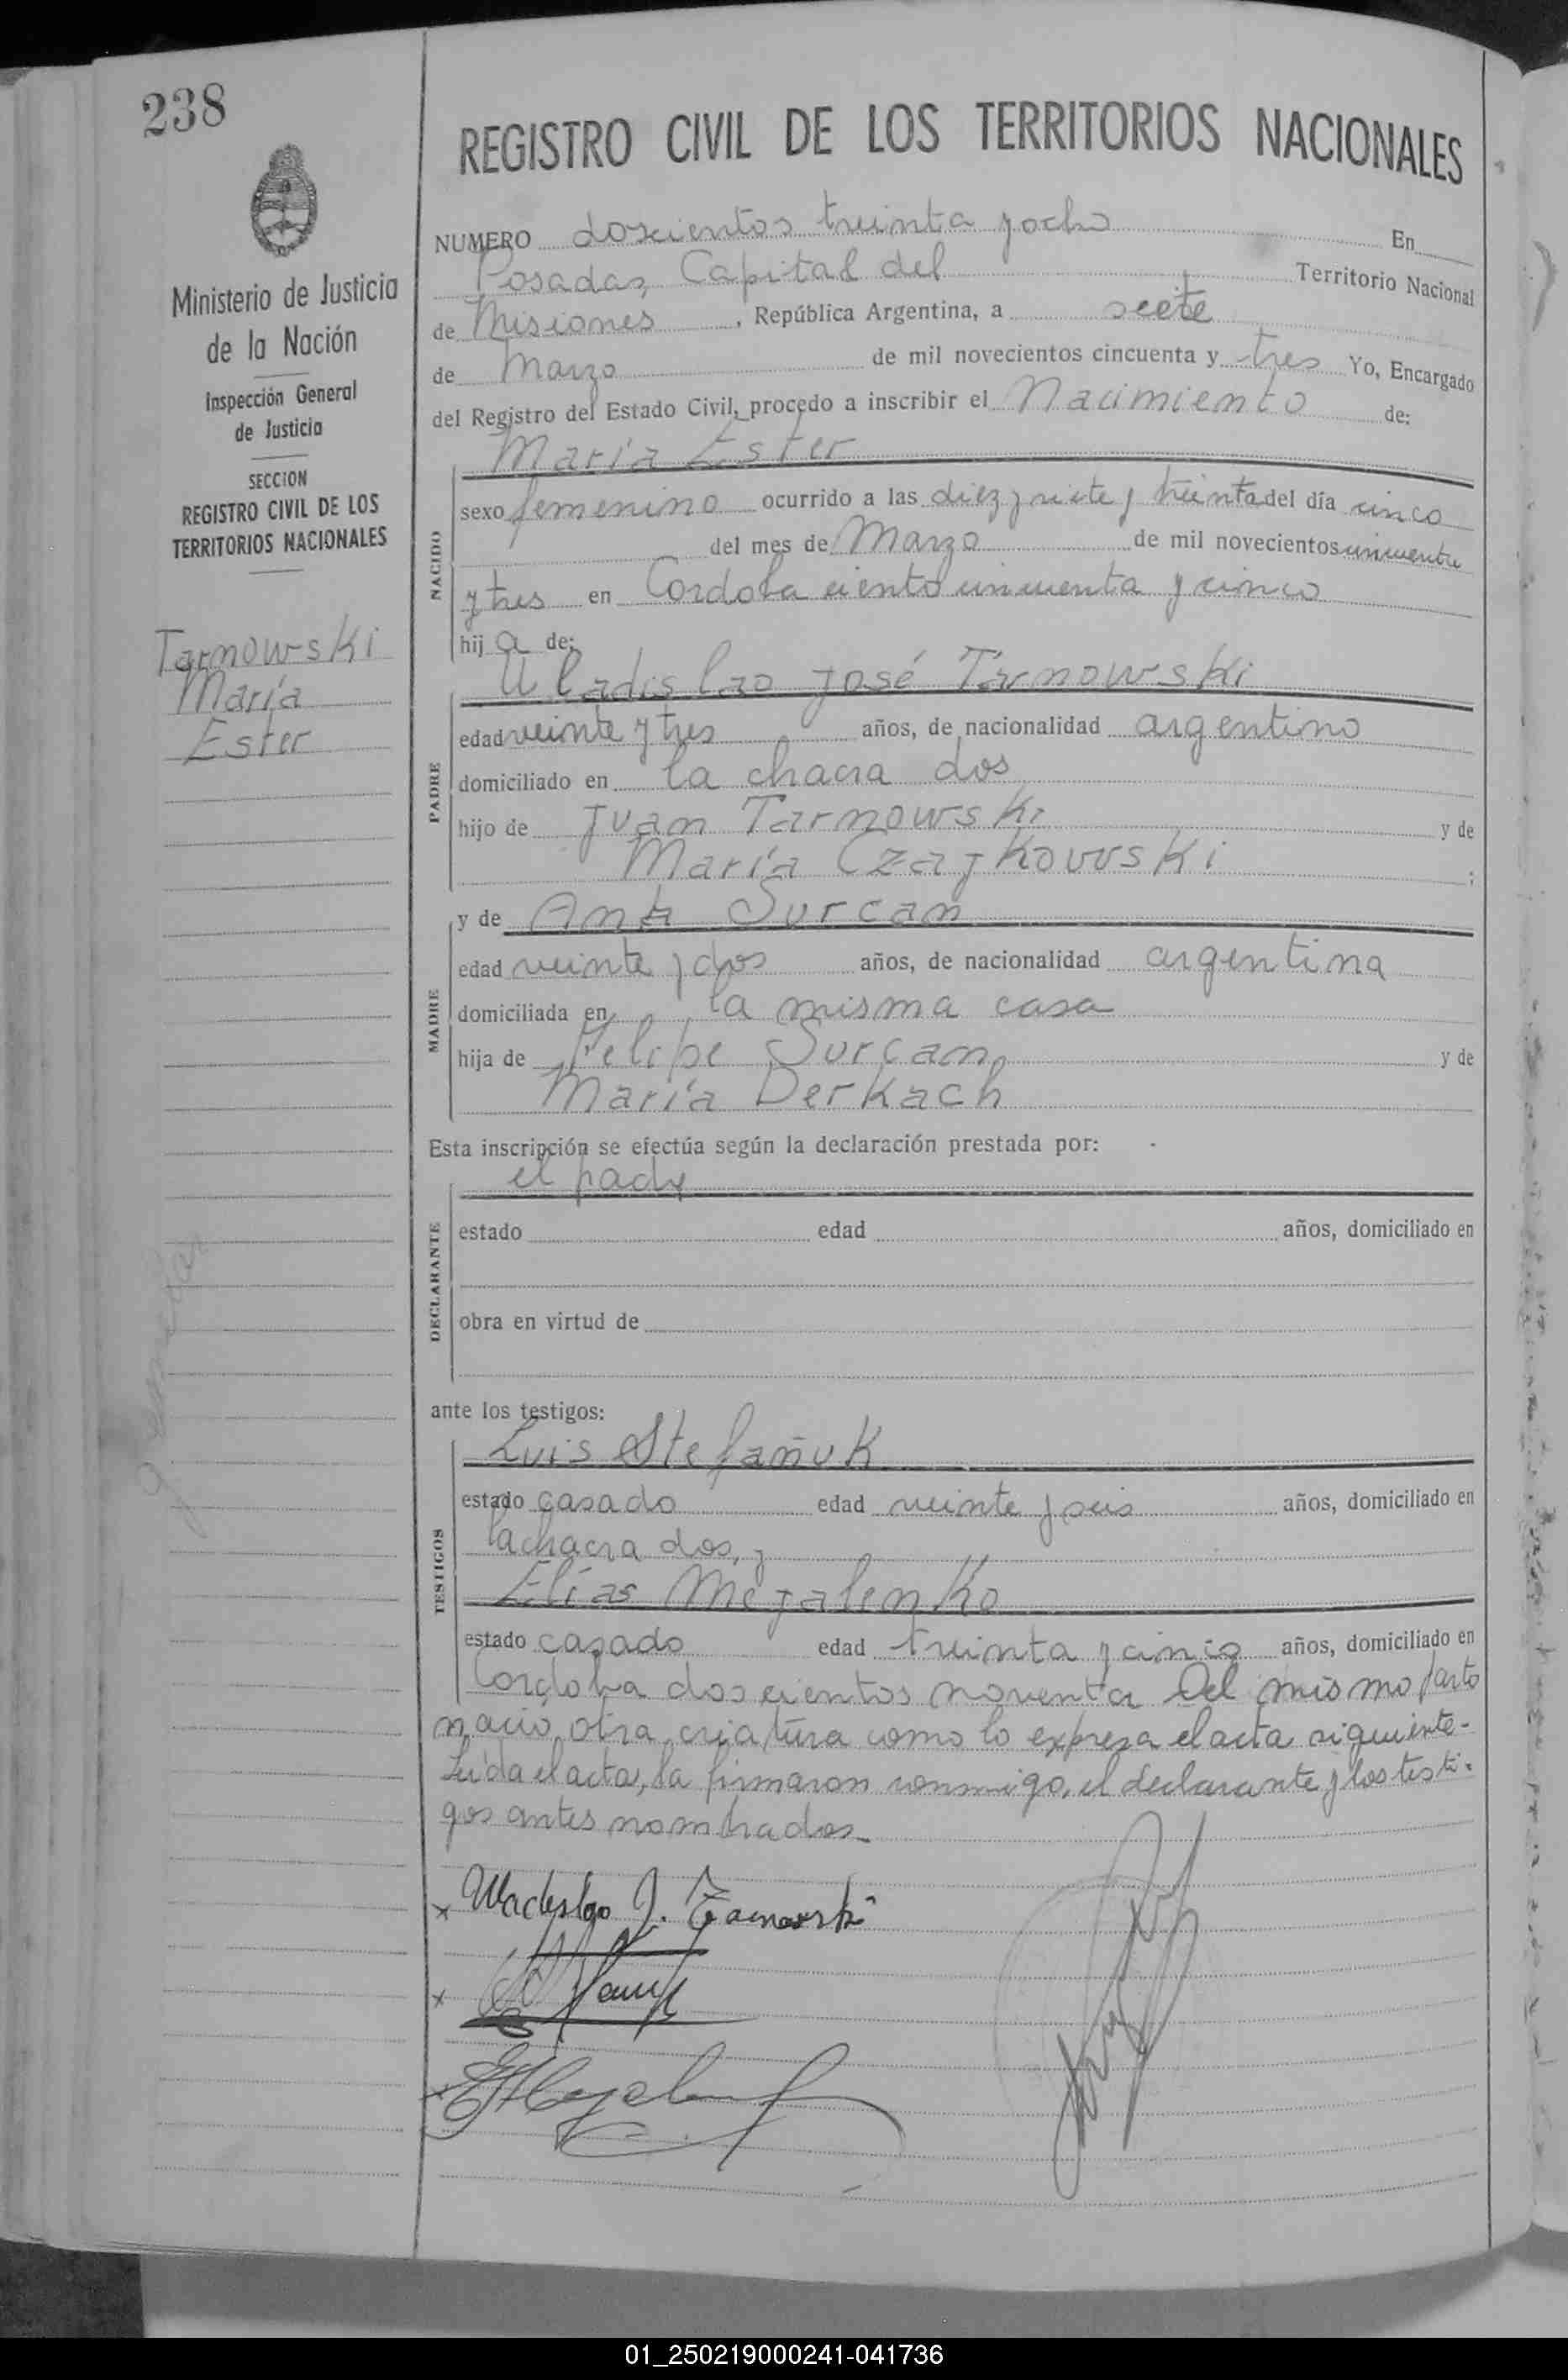 238
Ministerio de Justicia
de la Nación
Inspección General
de Justicia
SECCION
REGISTRO CIVIL DE LOS
TERRITORIOS NACIONALES
Tarnowski
María
Ester
REGISTRO CIVIL DE LOS TERRITORIOS NACIONALES
NUMERO doscientos treinta y ocho En
Posadas, Capital del Territorio Nacional
de Misiones, República Argentina, a siete
de Marzo de mil novecientos cincuenta y tres Yo, Encargado
del Registro del Estado Civil, procedo a inscribir el Nacimiento de:
María Ester
NACIDO
sexo femenino ocurrido a las diez y siete y treinta del día cinco
del mes de Marzo de mil novecientos cincuenta
y tres en Cordoba ciento cincuenta y cinco
hij a de:
Uladislao José Tarnowski
PADRE
edad veinte y tres años, de nacionalidad argentino
domiciliado en la chacra dos
hijo de Juan Tarnowski y de
María Czajkowski ;
y de Ana Surcan
MADRE
edad veinte y dos años, de nacionalidad argentina
domiciliada en la misma casa
hija de Felipe Surcan y de
María Derkach
Esta inscripción se efectúa según la declaración prestada por:
el padre
DECLARANTE
estado edad años, domiciliado en
obra en virtud de
ante los testigos:
Luis Stefañuk
TESTIGOS
estado casado edad veinte y seis años, domiciliado en
la chacra dos, y
Elías Mejalenko
estado casado edad treinta y cinco años, domiciliado en
Cordoba doscientos noventa Del mismo parto
nació otra criatura como lo expresa el acta siguiente-
Leída el acta, la firmaron conmigo, el declarante y los testi-
gos antes nombrados-
x Uladislao J. Tarnowski
x
x
01_250219000241-041736